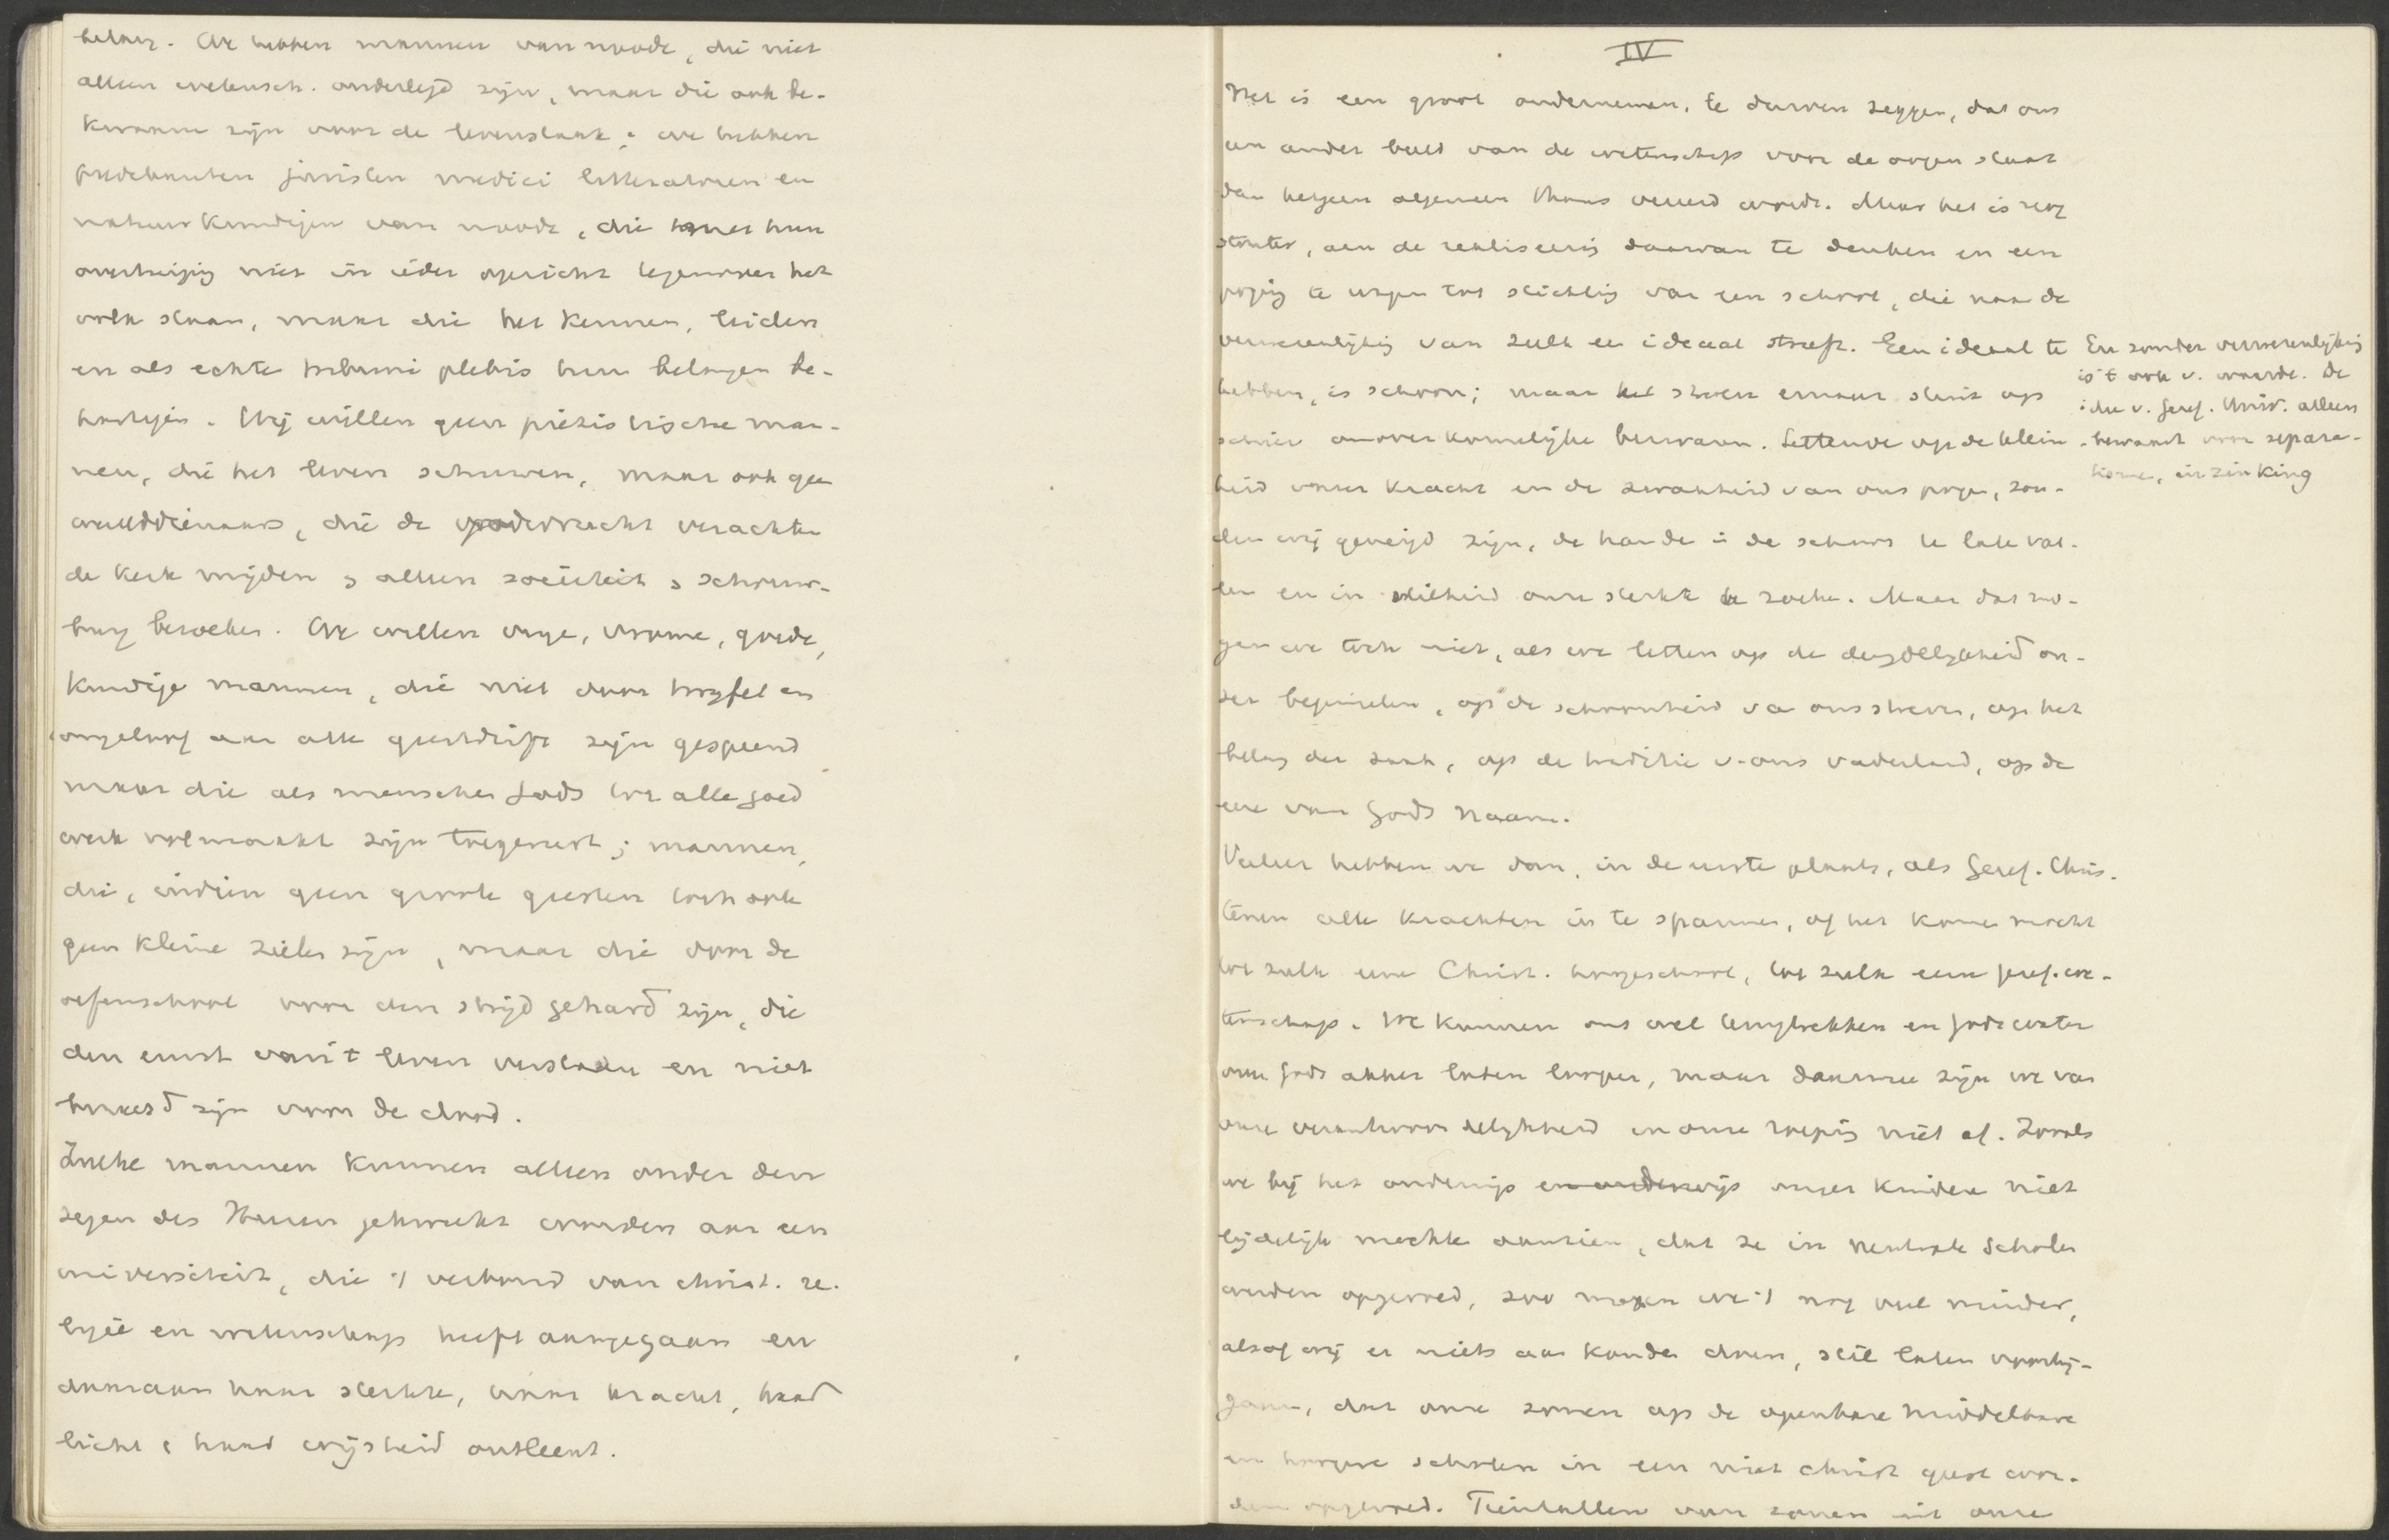 belang. We hebben mannen van noode, die niet
alleen wetensch. onderlegd zijn, maar die ook be-
kwaam zijn voor de levenstaak; we hebben
predikanten juristen medici litteratoren en
natuurkundigen van noode, die met hun
overtuiging niet in ieder opzicht tegenover het
volk staan, maar die het kennen, leiden
en als echte tribuni plebis hun belangen be-
hartigen. Wij willen geen piëtistische man-
nen, die het leven schuwen, maar ook geen
werelddienaars, die de godsvrucht verachten
de kerk mijden & alleen sociëteit & schouw-
burg bezoeken. We willen vrije, vrome, goede,
kundige mannen, die niet door twijfel en
ongeloof aan alle geestdrift zijn gespeend
maar die als menschen Gods tot alle goed
werk volmaakt zijn toegerust; mannen,
die, indien geen groote geesten toch ook
geen kleine zielen zijn, maar die door de
oefenschool voor den strijd gehard zijn, die
den ernst van 't leven verstaan en niet
bevreesd zijn voor de dood.
Zulke mannen kunnen alleen onder den
zegen des Heeren gekweekt worden aan een
universiteit, die 't verbond van christ. re-
ligie en wetenschap heeft aangegaan en
daaraan haar sterkte, haar kracht, haar
licht & haar wijsheid ontleent.
IV
Het is een groot ondernemen, te durven zeggen, dat ons
een ander beeld van de wetenschap voor de oogen staat
dan hetgeen algemeen thans vereerd wordt. Maar het is nog
stouter, aan de realiseering daarvan te denken en een
poging te wagen tot stichting van een school, die naar de
verwezenlijking van zulk een ideaal streeft. Een ideaal te
hebben, is schoon; maar het streven ernaar stuit op
schier onoverkomelijke bezwaren. Lettende op de klein-
heid onzer kracht en de zwakheid van ons pogen, zou-
den wij geneigd zijn, de handen in de schoot te laten val-
len en in stilheid onze sterkte te zoeken. Maar dat mo-
gen we toch niet, als we letten op de deugdelijkheid on-
zer beginselen, op de schoonheid van ons streven, op het
belang der zaak, op de traditie v. ons vaderland, op de
eere van Gods Naam.
Veeleer hebben we dan, in de eerste plaats, als Geref. Chris-
tenen alle krachten in te spannen, of het komen mocht
tot zulk eene Christ. hoogeschool, tot zulk eene geref. we-
tenschap. We kunnen ons wel terugtrekken en Gods water
over Gods akker laten loopen, maar daarmee zijn we van
onze verantwoordelijkheid en onze roeping niet af. Zooals
we bij het onderwijs en onderwijs onzer kinderen niet
lijdelijk mochten aanzien, dat ze in neutrale scholen
werden opgevoed, zoo mogen we 't nog veel minder,
alsof wij er niets aan konden doen, stil laten voorbij-
gaan, dat onze zonen op de openbare middelbare
en hoogere scholen in een niet christ geest wor-
den opgevoed. Tientallen van zonen uit onze
En zonder verwezenlijking
is 't ook v. waarde. De
idee v. Geref. Univ. alleen
bewaart voor separa-
tisme, inzinking